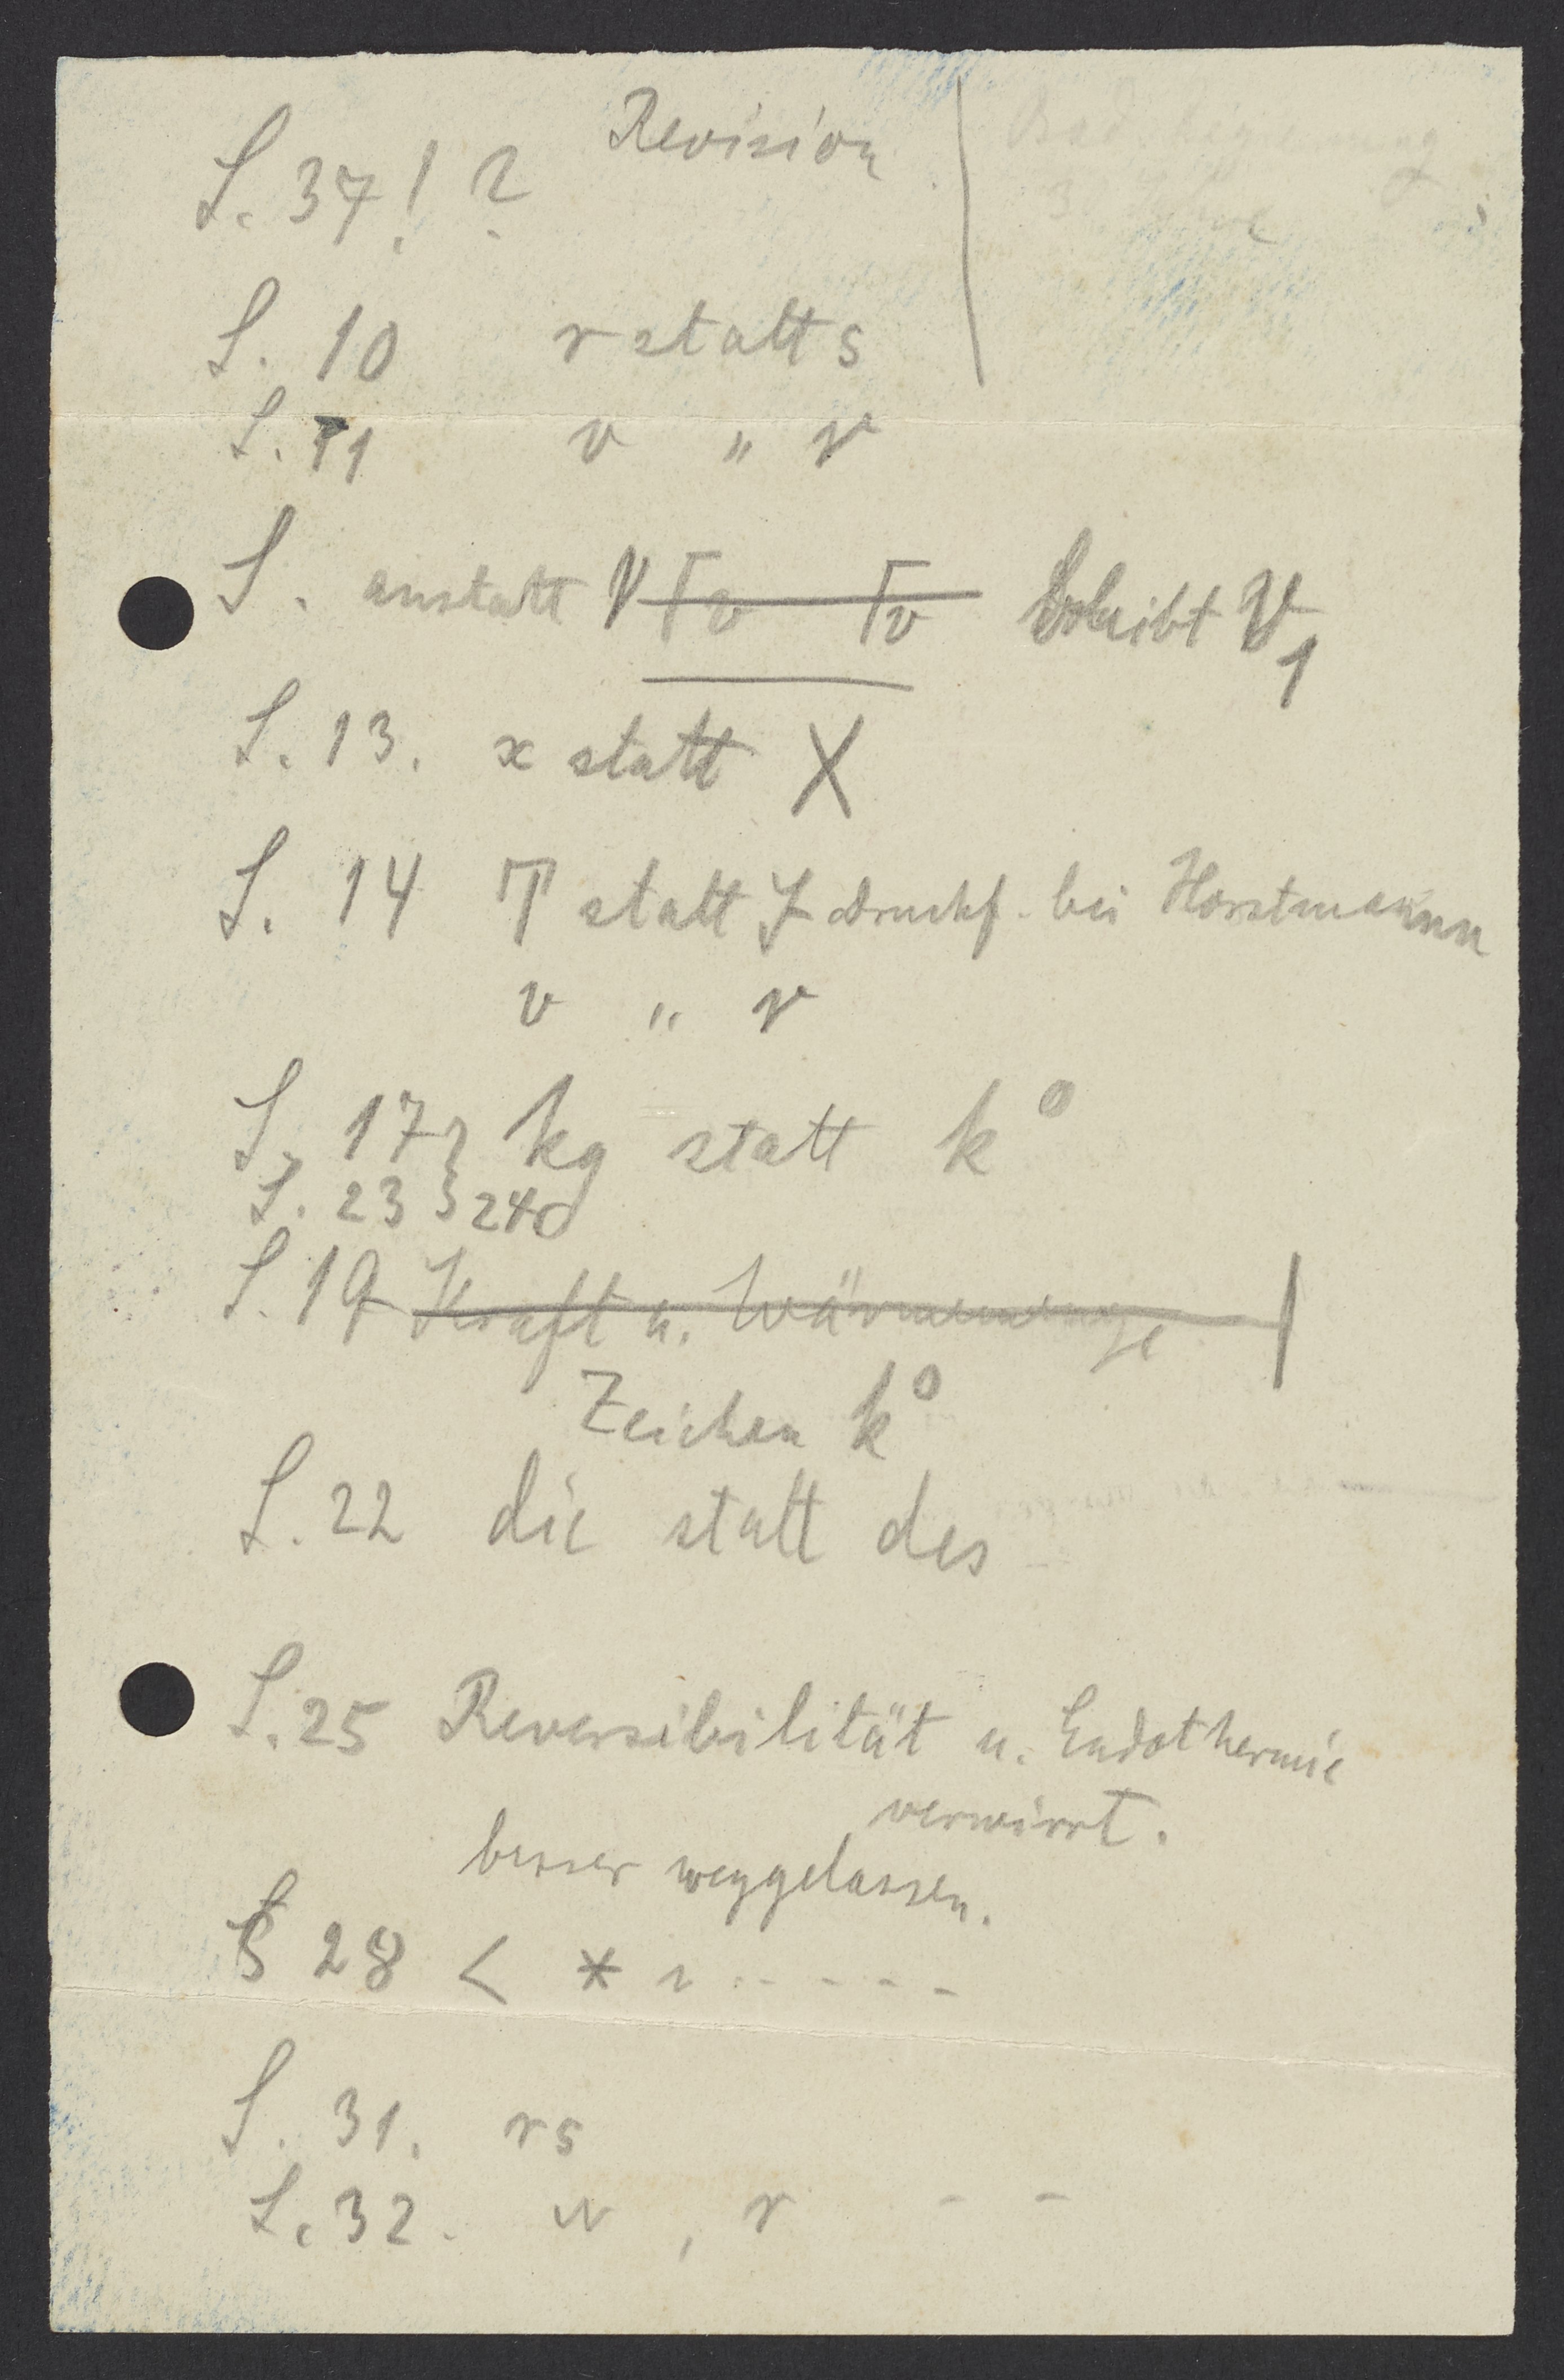 Revision
S. 37! ?
S. 10 r statt s
S. 11 v " r
S. anstatt V Tv Tv bleibt V1
S. 13. x statt X
S. 14 T statt J Druckf. bei Horstmann
v " r
S. 17 } kg statt k⁰
S. 23 } 240
S. 19 Kraft u. Wärmemenge
Zeichen k⁰
S. 22 die statt des
S. 25 Reversibilität u. Endothermie
verwirrt.
besser weggelassen.
S 28 < * r - - - - -
S. 31. rs
S. 32. v , r - -